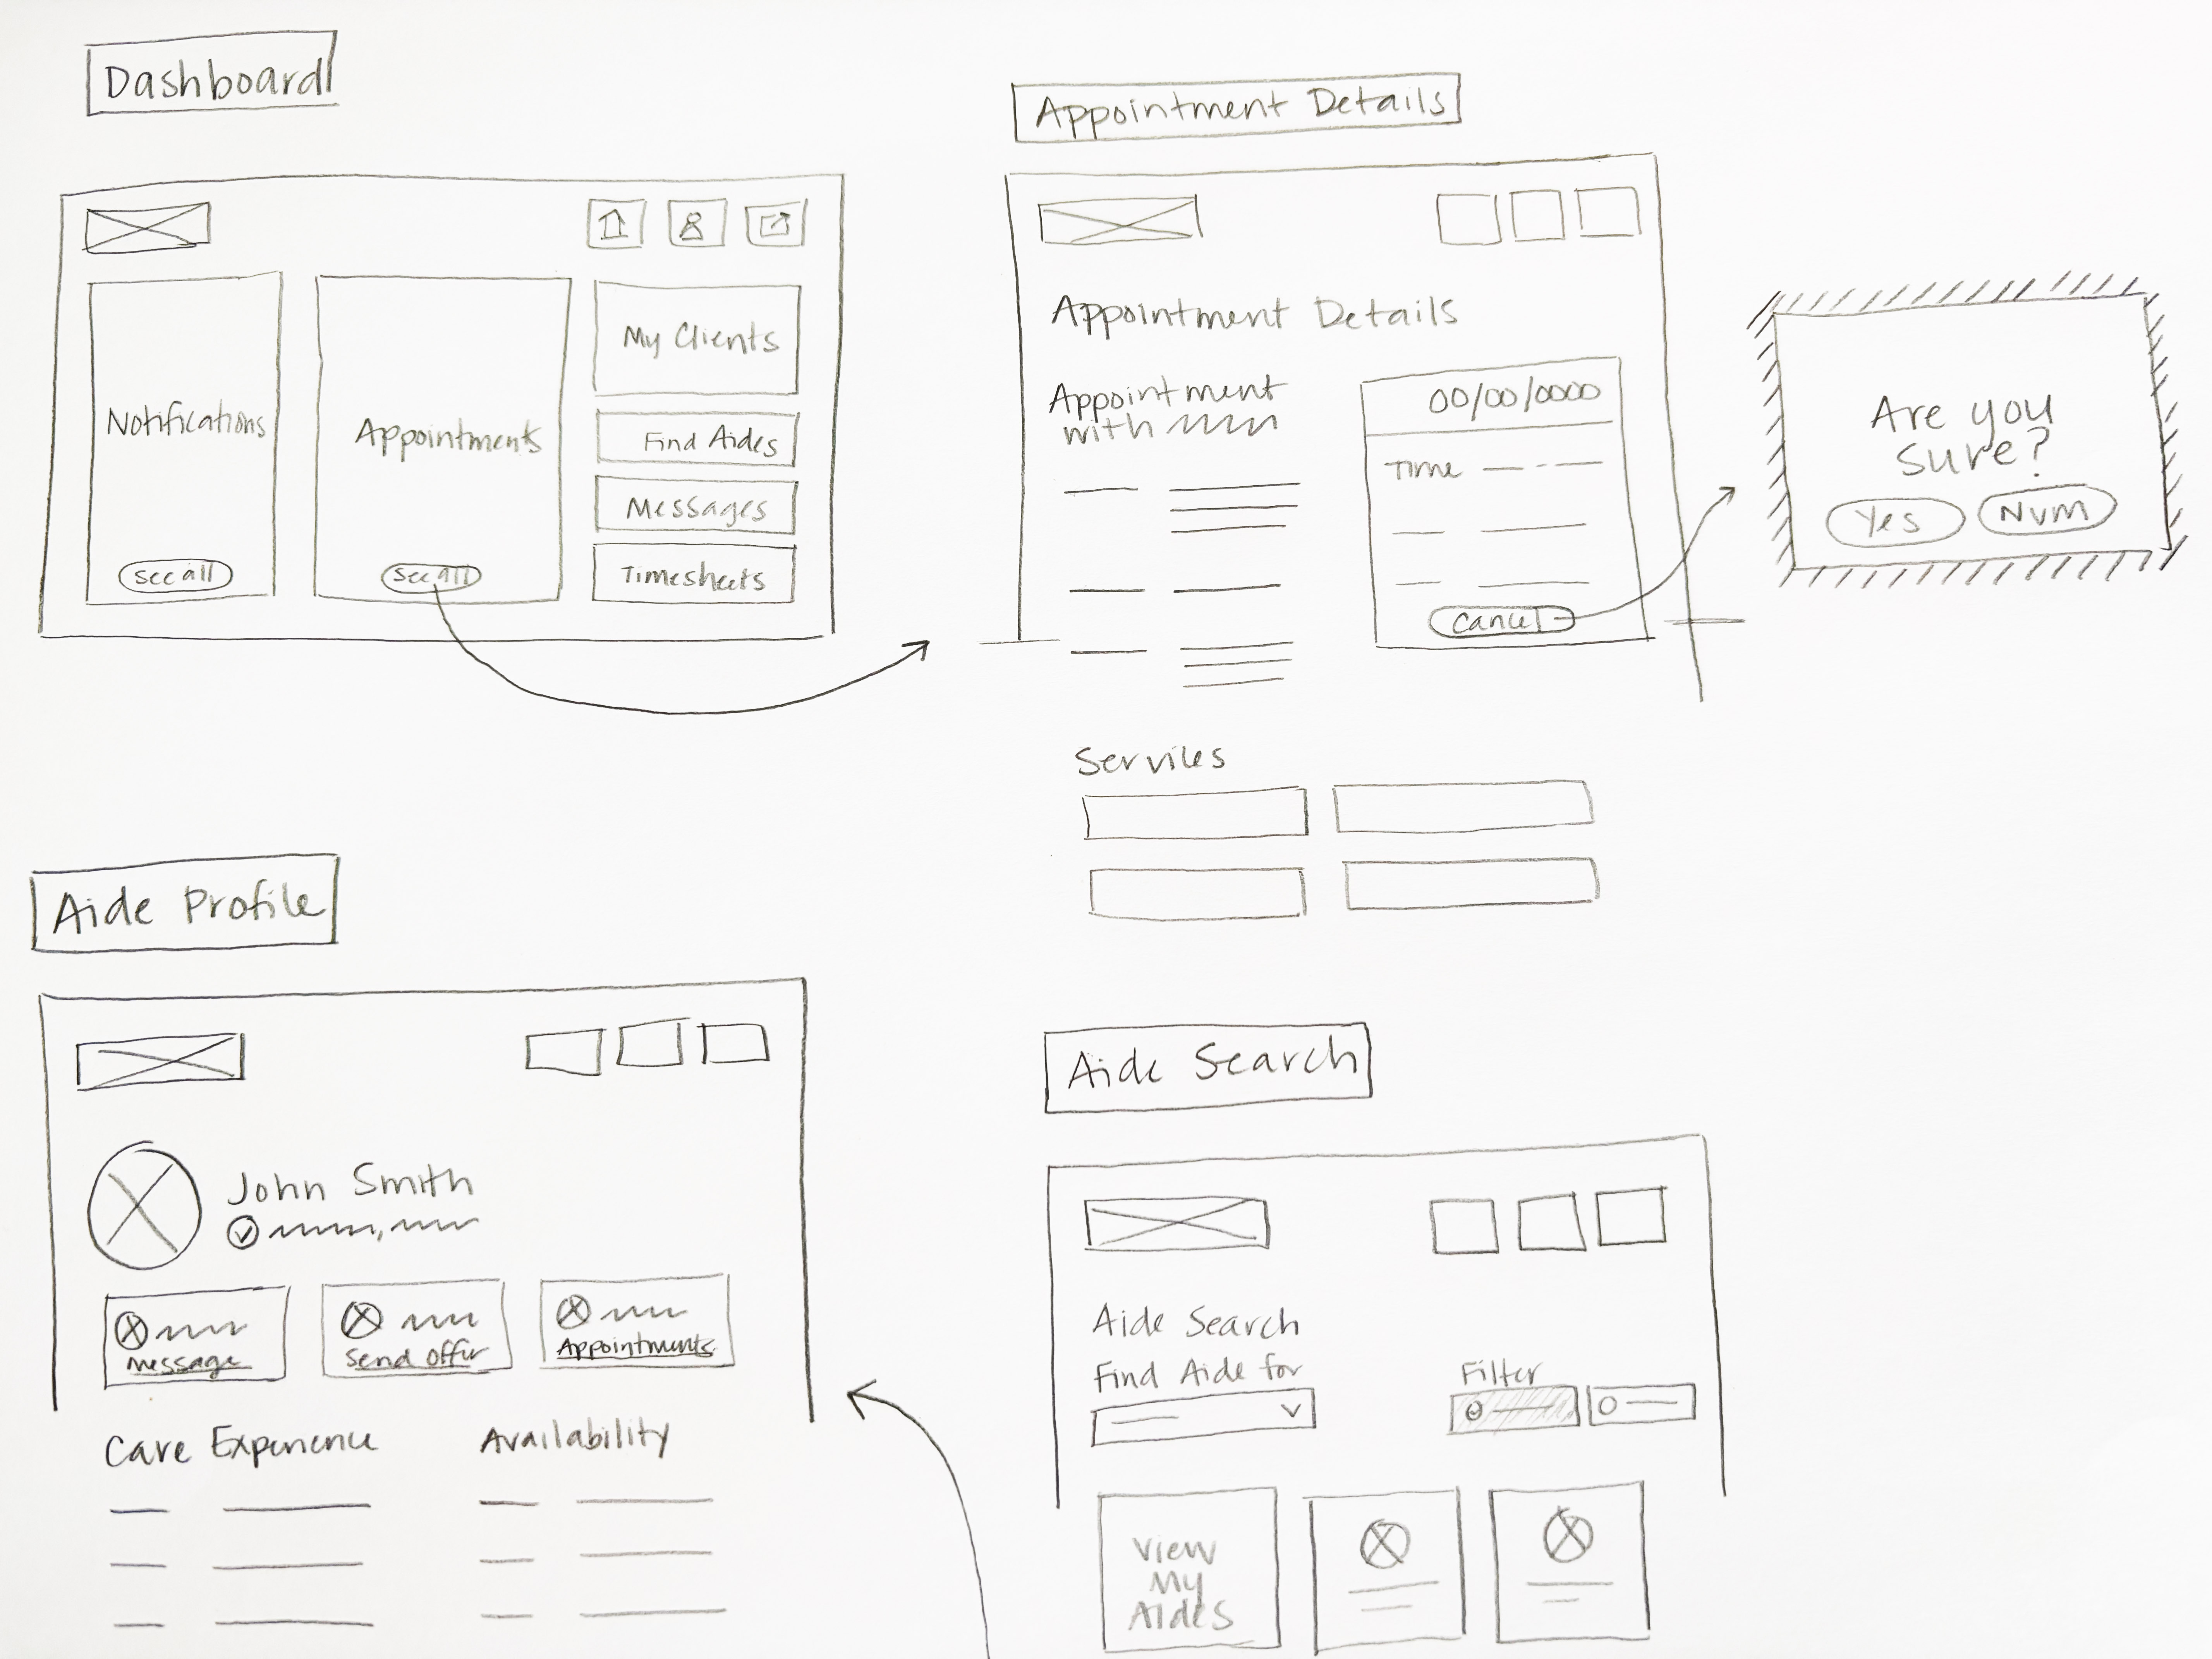 Dashboard
Notifications
see all
Appointments
see all
My Clients
Find Aides
Messages
Timesheets
Appointment Details
Appointment Details
Appointment
with
00/00/0000
Time
Cancel
Services
Are you
sure?
Yes
Nvm
Aide Profile
John Smith
message
Send offer
Appointments
Care Experience
Availability
Aide Search
Aide Search
Find Aide for
Filter
View
My
Aides